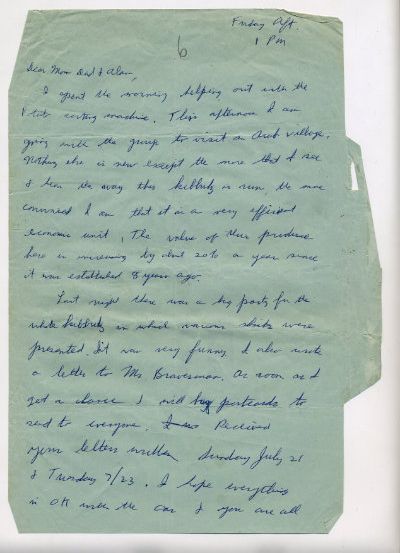 Friday Aft.
1 PM
6
Dear Mom Dad & Alan,
I spent the morning helping out with the
plate cutting machine. This afternoon I am
going with the group to visit an Arab village.
Nothing else is new except the more that I see
& learn the way this kibbutz is run the more
convinced I am that it is a very efficient
economic unit. The value of their produce
here is increasing by about 20% a year since
it was established 8 years ago.
Last night there was a big party for the
whole kibbutz in which various skits were
presented. It was very funny. I also wrote
a letter to Mr. Braverman. As soon as I
get a chance I will buy postcards to
send to everyone. Received
your letters written Sunday July 21
& Tuesday 7/23. I hope everything
is OK with the car & you are all